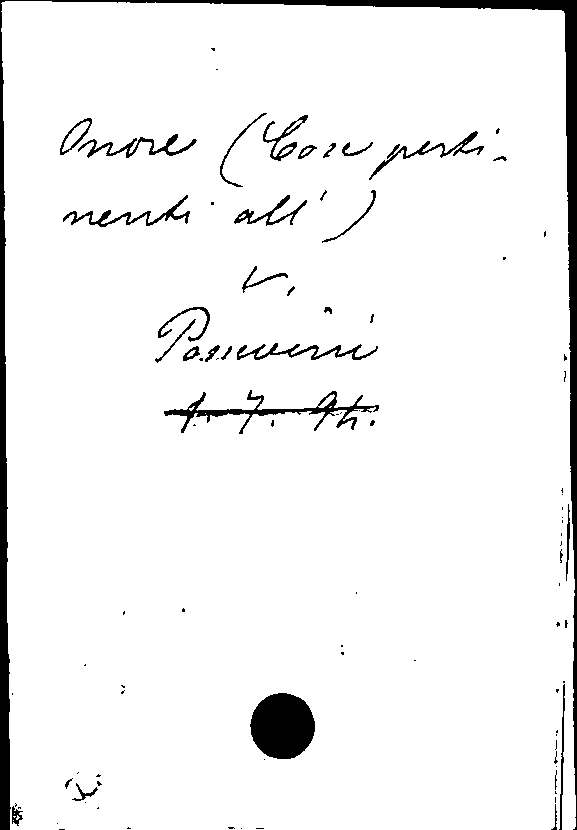 Onore (Cose perti-
nenti all')
v.
Possevini
1. 7. 94.